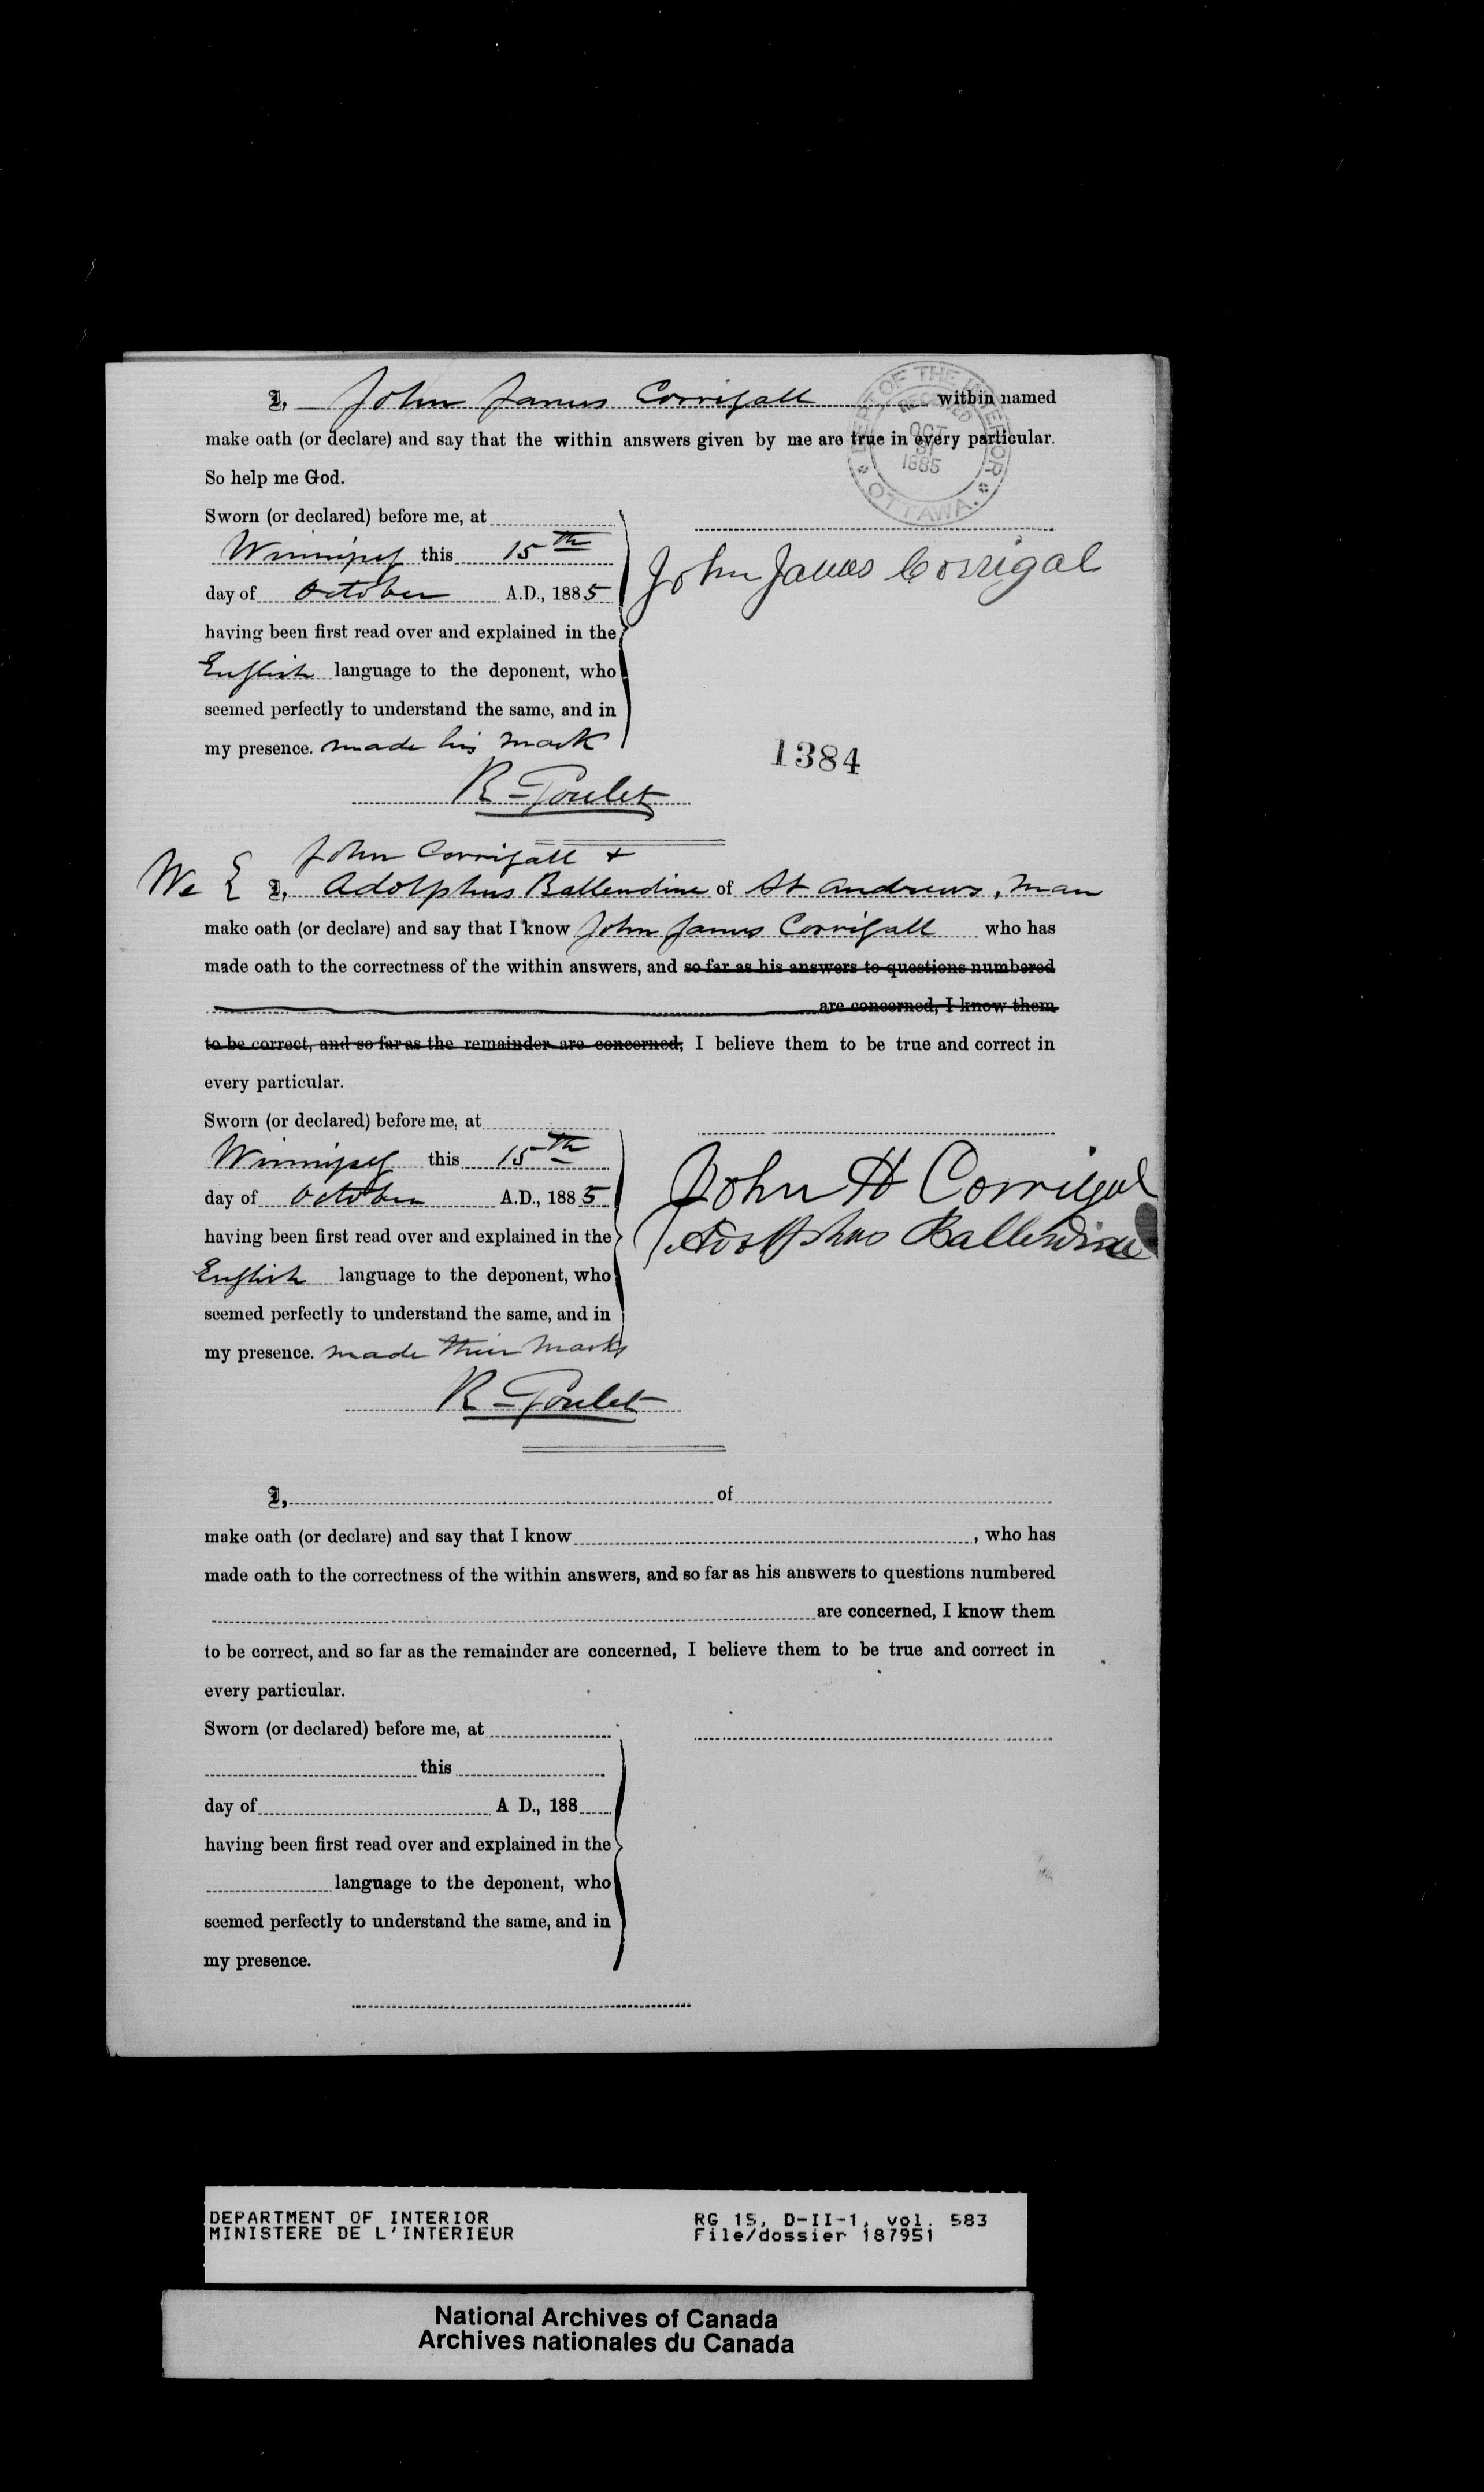 I, John James Corrigall within named
make oath (or declare) and say that the within answers given by me are true in every particular.
So help me God.
DEPT OF THE INTERIOR
RECEIVED
OCT
31
1885
OTTAWA.
Sworn (or declared) before me, at
Winnipeg this 15th
day of October A.D., 1885
John James Corrigal
having been first read over and explained in the
English language to the deponent, who
seemed perfectly to understand the same, and in
my presence. made his mark
1384
R Goulet
John Corrigall +
We & I, Adolphus Ballendine of St Andrews, Man
make oath (or declare) and say that I know John James Corrigall who has
made oath to the correctness of the within answers, and so far as his answers to questions numbered
are concerned, I know them
to be correct, and so far as the remainder are concerned, I believe them to be true and correct in
every particular.
Sworn (or declared) before me, at
Winnipeg this 15th
day of October A.D., 1885
John H Corrigal
Adolphus Ballendine
having been first read over and explained in the
English language to the deponent, who
seemed perfectly to understand the same, and in
my presence. made their marks
R Goulet
I, of
make oath (or declare) and say that I know , who has
made oath to the correctness of the within answers, and so far as his answers to questions numbered
are concerned, I know them
to be correct, and so far as the remainder are concerned, I believe them to be true and correct in
every particular.
Sworn (or declared) before me, at
this
day of A D., 188
having been first read over and explained in the
language to the deponent, who
seemed perfectly to understand the same, and in
my presence.
DEPARTMENT OF INTERIOR
MINISTERE DE L'INTERIEUR
RG 15, D-II-1, vol. 583
File/dossier 187951
National Archives of Canada
Archives nationales du Canada